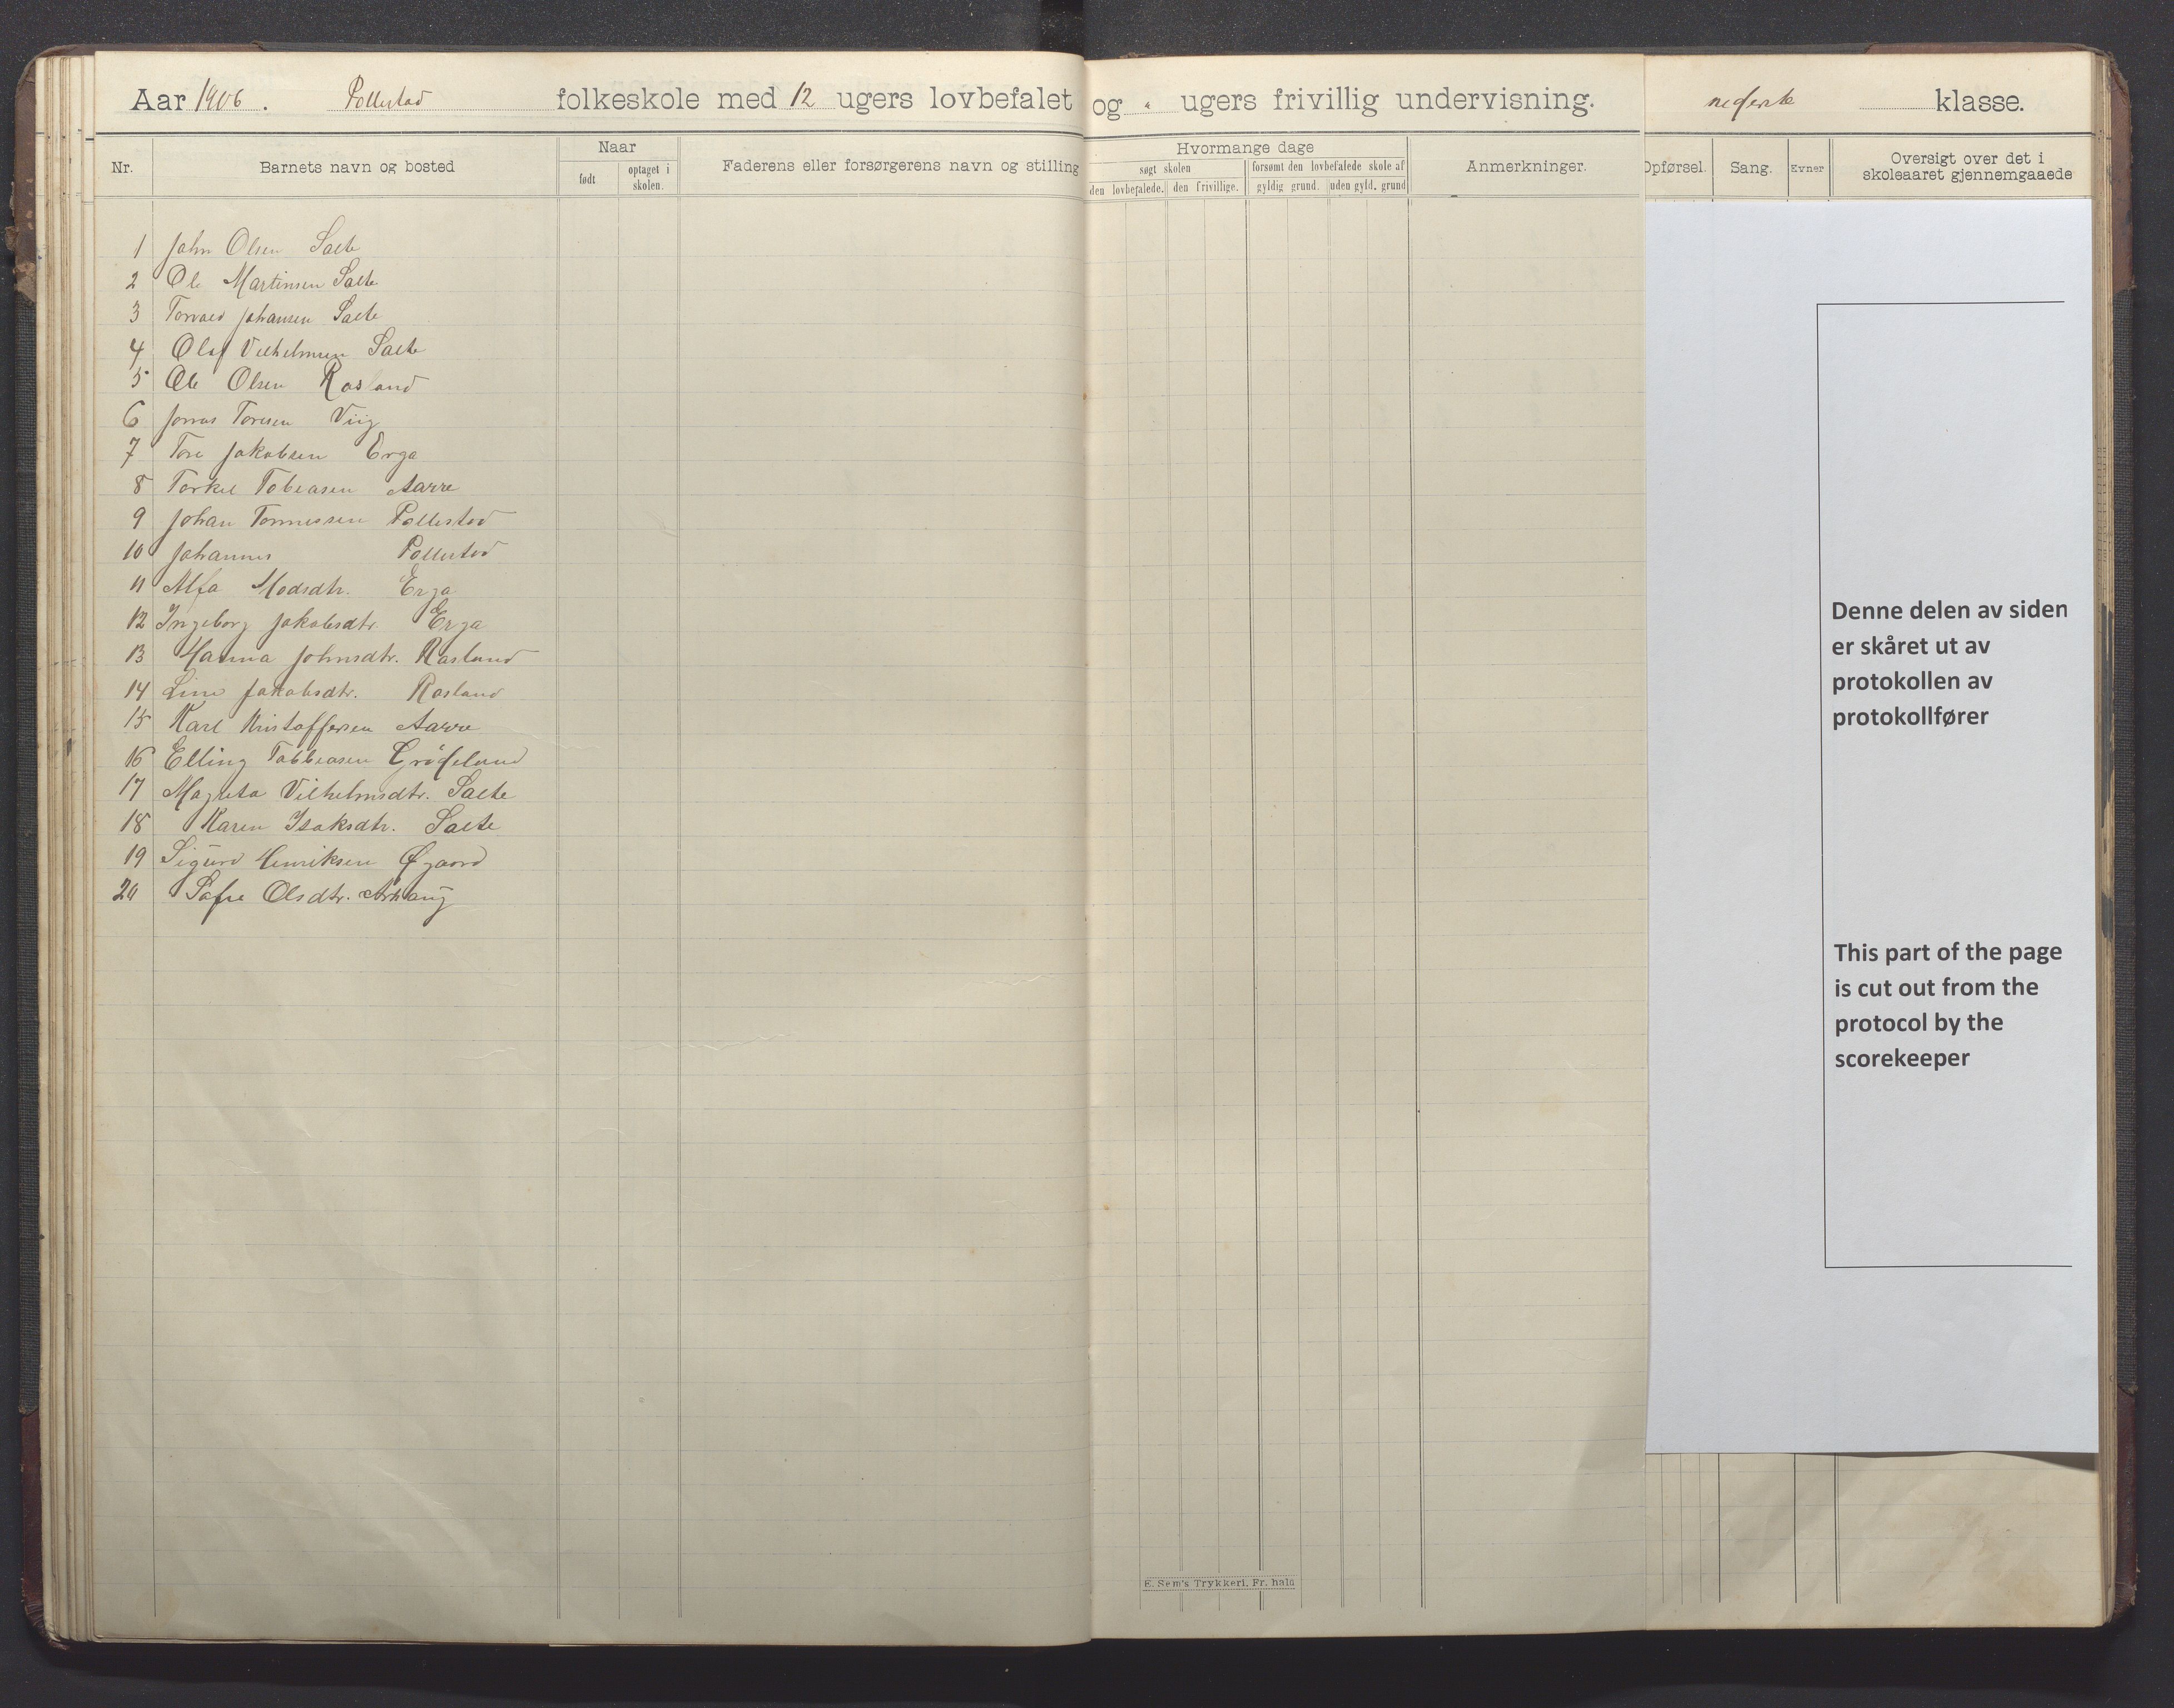 Aar 1906. Pollestad folkeskole med 12 ugers lovbefalet og ugers frivillig undervisning. nederste klasse.
Nr. Barnets navn og bosted Naar født optaget i skolen. Faderens eller forsørgerens navn og stilling Hvormange dage søgt skolen den lovbefalede. den frivillige. forsømt den lovbefalede skole af gyldig grund. uden gyld. grund Anmerkninger. Opførsel. Sang. Evner Oversigt over det i skoleaaret gjennemgaaede
1 John Olsen Salte
2 Ole Martinsen Salte
3 Torvald Johansen Salte
4 Olaf Vilhelmsen Salte
5 Ole Olsen Rosland
6 Jonas Toresen Viig
7 Tore Jakobsen Erga
8 Torkel Tobiasen Aarre
9 Johan Tønnessen Pollestad
10 Johannes Pollestad
11 Alfa Madsdtr. Erga
12 Ingeborg Jakobsdtr. Erga
13 Hanna Johnsdtr. Rosland
14 Line Jakobsdtr. Rosland
15 Karl Kristoffersen Aarre
16 Elling Tobbiasen Grödeland
17 Magreta Vilhelmsdtr. Salte
18 Karen Isaksdtr. Salte
19 Sigurd Henriksen Øgaard
20 Sofie Olsdtr.
Denne delen av siden
er skåret ut av
protokollen av
protokollfører
This part of the page
is cut out from the
protocol by the
scorekeeper
E. Sem's Trykkeri, Fr. hald